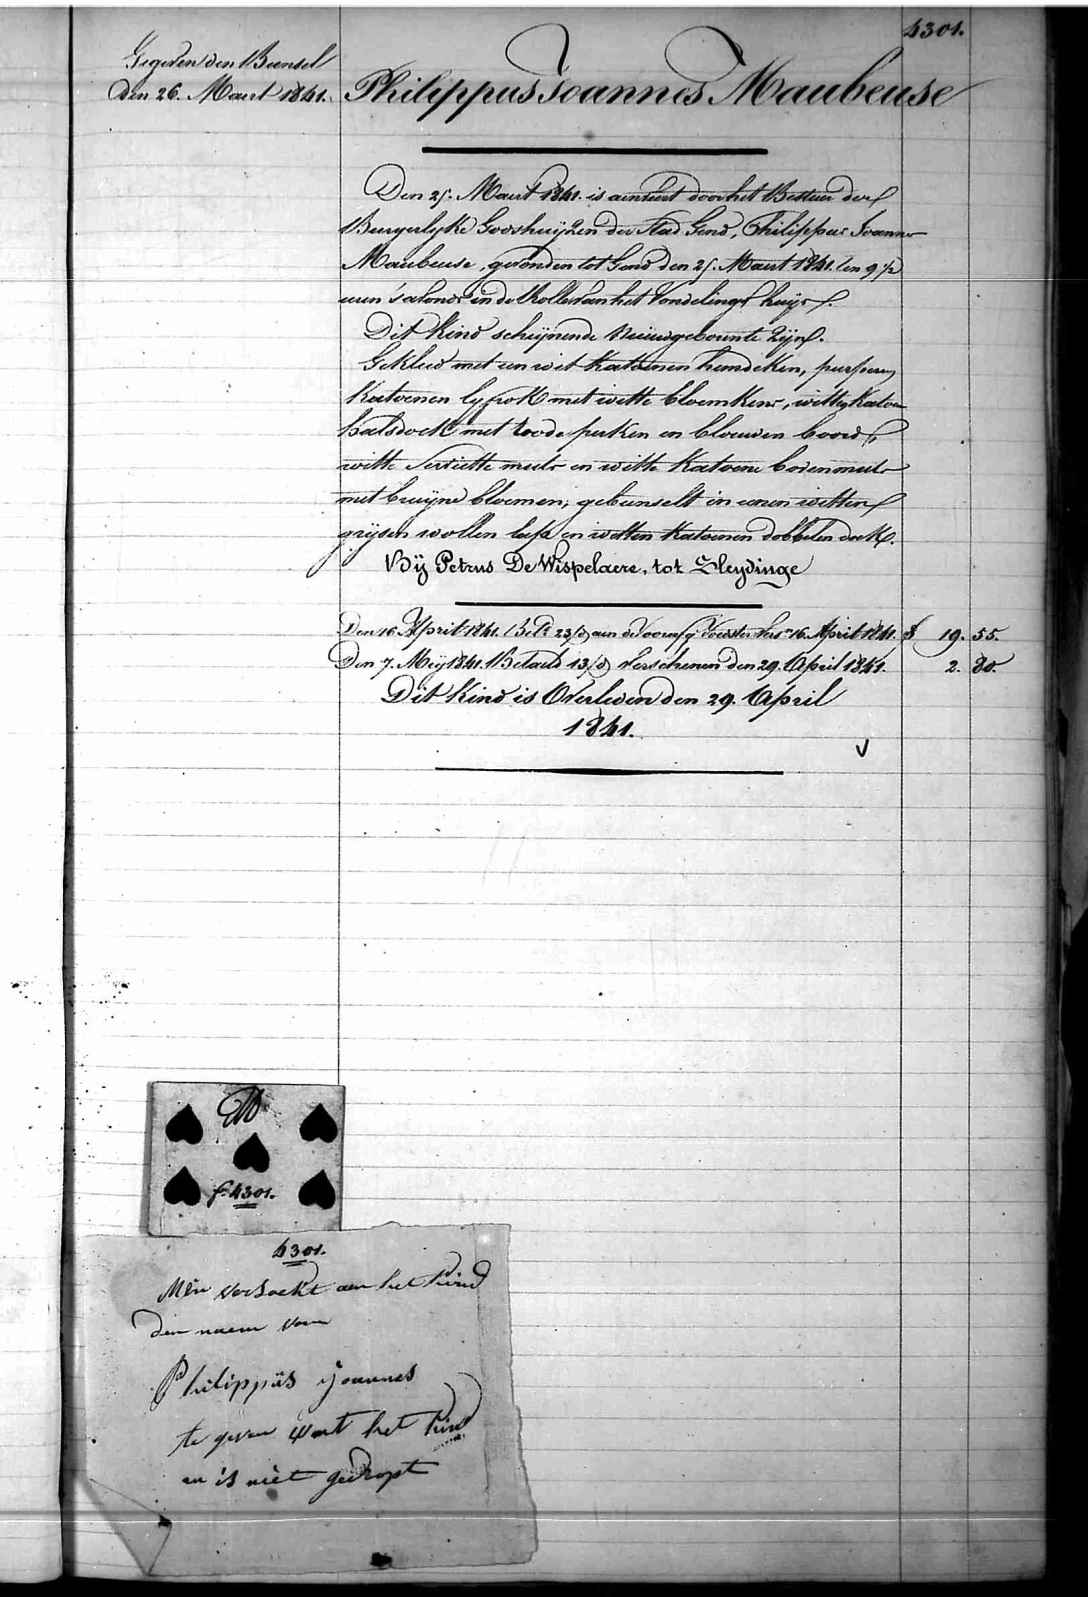 4301.
Gegeven den Bunsel
den 26. Maert 1841.
Philippus Joannes Maubeuse
Den 25. Maert 1841. is aenveert door het Bestier der
Burgerlyke Godshuijzen der Stad Gend, Philippus Joannes
Maubeuse, gevonden tot Gend den 25. Maert 1841. ten 9 1/2
uren 's avonds in de Rolle van het Vondelingshuijs.
Dit kind schijnende Nieuwgeboorn te zijn.
Gekleed met een wit katoenen hemdeken, purperen
katoenen lyfrok met witte bloemkens, witten katoen
halsdoek met roode perken en blouwen boord,
witte Serviette muts en witte katoene bovenmuts
met bruijne bloemen, gebunselt in eenen witten
grijsen wollen lap en witten katoenen dobbelen doek.
Bij Petrus De Wispelaere, tot Sleydinge
Den 16. April 1841. Bet. 23/d aen de voors. Voedster Vers. 16. April 1841. f 19. 55.
Den 7. Meij 1841. Betaeld 13/d Verschenen den 29. April 1841. 2. 80.
Dit Kind is Overleden den 29. April
1841.
V
M
f. 4301.
4301.
Men versoekt aen het kind
den naem van
Philippüs Joannes
te geven want het kind
en is niet gedropt